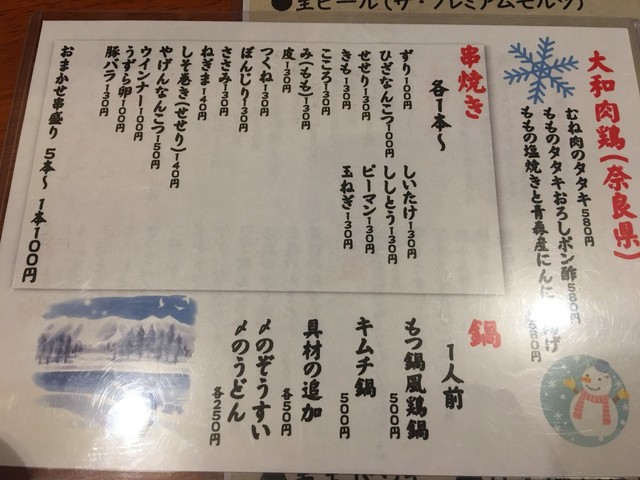 ●生ビール(ザ・プレミアムモルツ)
大和肉鶏(奈良県)
むね肉のタタキ580円
もものタタキおろしポン酢580円
ももの塩焼きと青森産にんにく
串焼き
各1本〜
ずり100円
ひざなんこつ100円
せせり130円
きも130円
こころ130円
み(もも)130円
皮130円
つくね130円
ぼんじり130円
ささみ130円
ねぎま140円
しそ巻き(せせり)140円
やげんなんこつ150円
ウインナー100円
うずら卵100円
豚バラ130円
しいたけ130円
ししとう130円
ピーマン130円
玉ねぎ130円
おまかせ串盛り 5本〜 1本100円
鍋
1人前
もつ鍋風鶏鍋 500円
キムチ鍋 500円
具材の追加 各50円
〆のぞうすい
〆のうどん 各250円